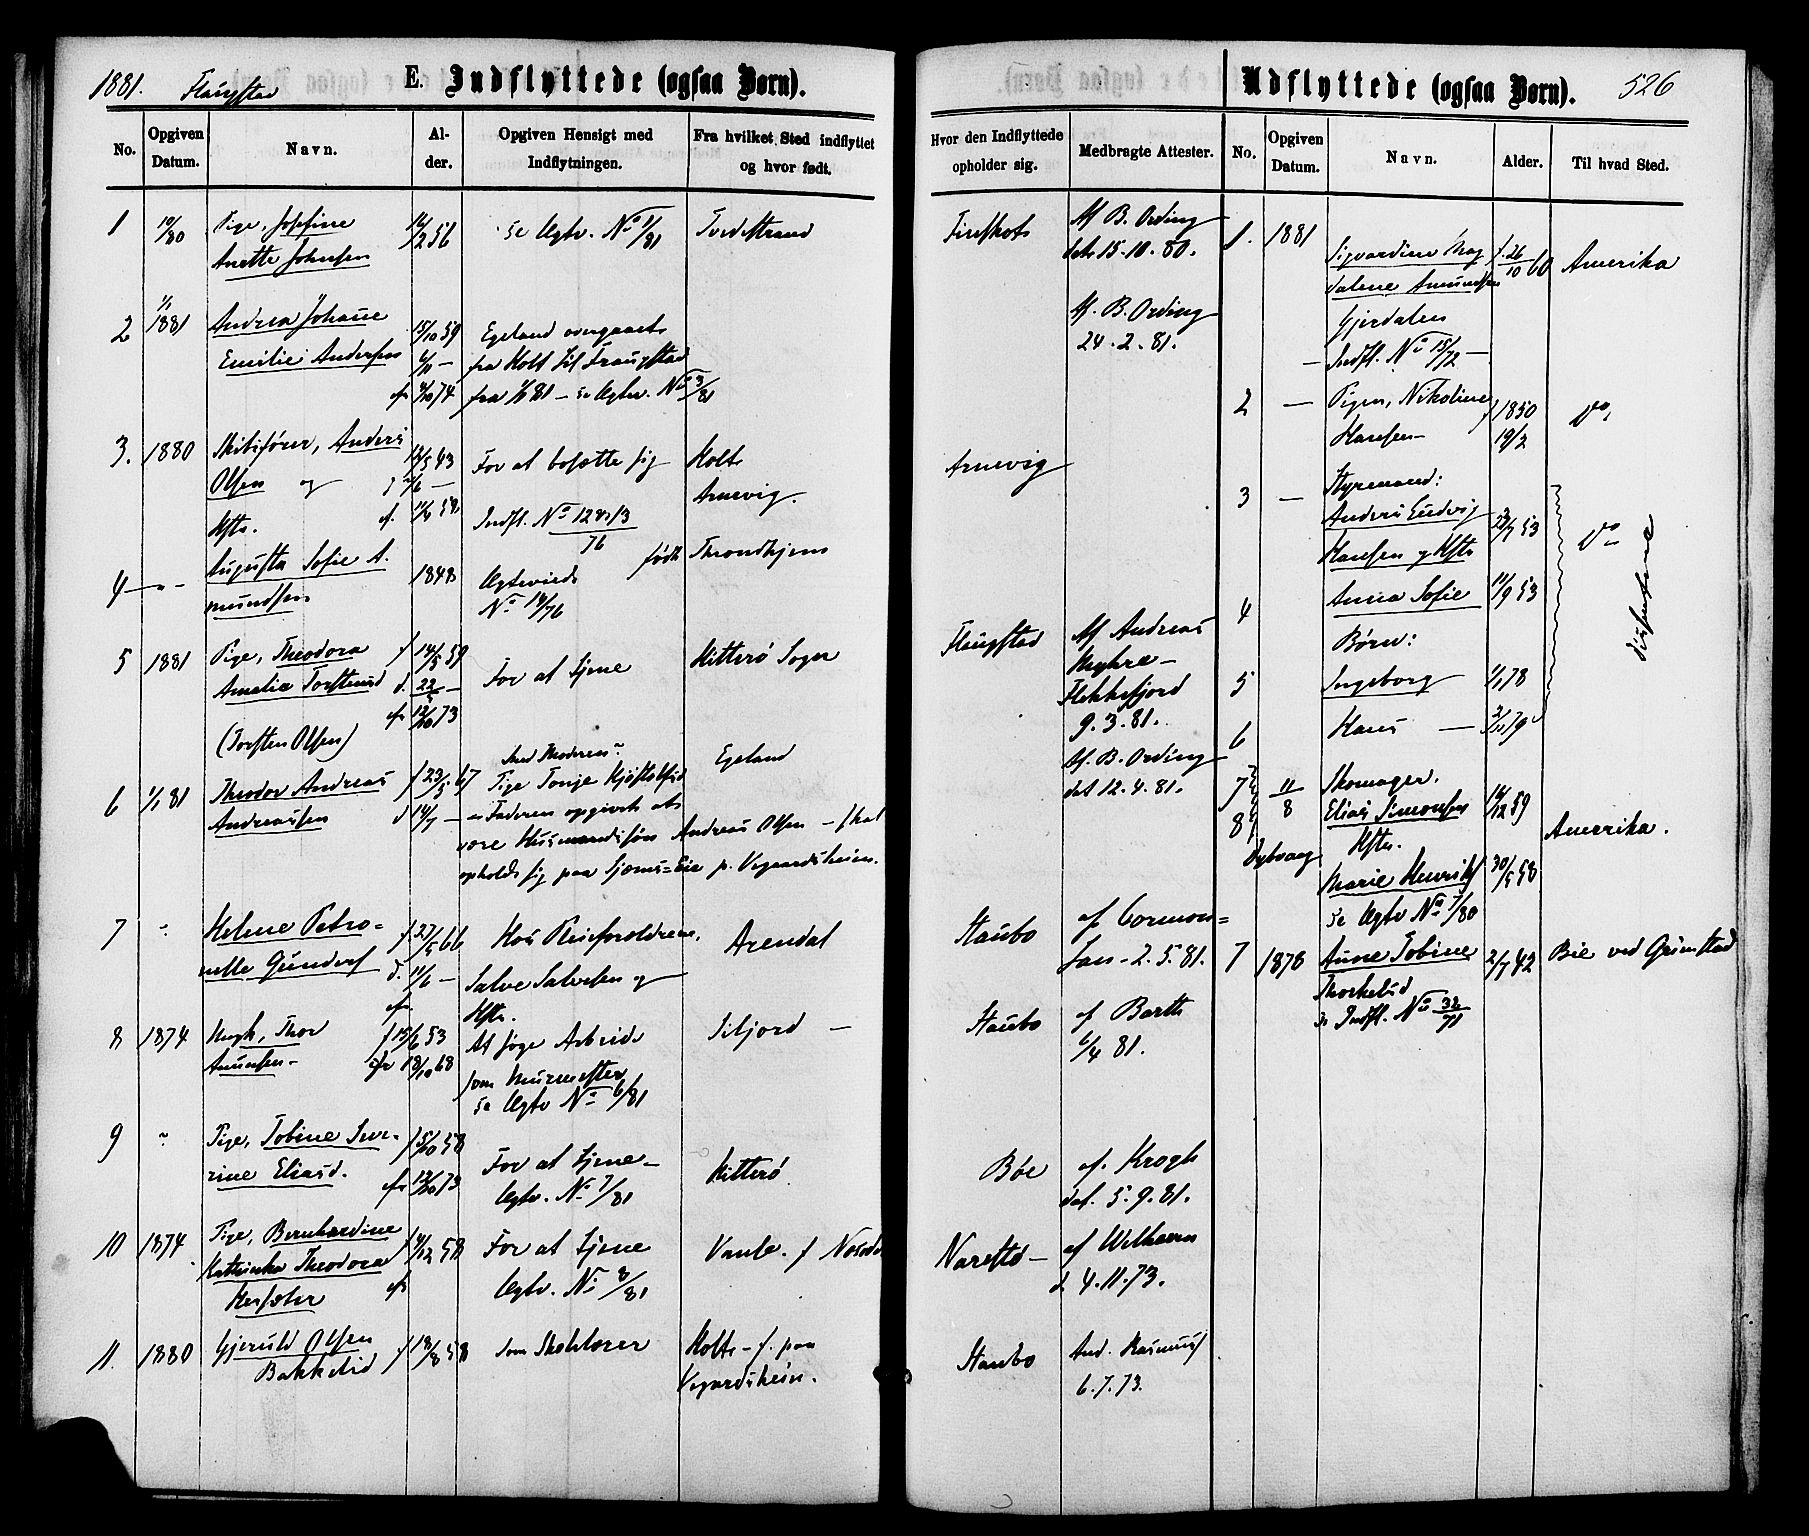 1881. Flangstad E. Indflyttede (ogsaa Børn).
No. Opgiven Datum. Navn. Alder. Opgiven Hensigt med Indflytningen. Fra hvilket Sted indflyttet og hvor født.
1 10/80 Pige, Josefine 56 se Ægtv. No 1/81 Tvedestrand
Anette Johnsen
2 1/1 1881 Andrea Johanne 15/10 59 Egeland overgaaet
Emilie Andersen fra Holt til Flangstad
fra 1/1 81 – se Ægtv. No 3/81
3. 1880 Skibsfører, Anders 43 For at bosætte sig Holt
Olsen og Arnevig.
Hstr. Indfl. No 12 & 13/76
4 Augusta Sofie A- 1848 Ægteviede født Throndhjem
mundsen No 14/76
5 1881 Pige, Theodora f 14/5 59 For at tjene Hitterø Sogn
Amalie Torstensd d. 22/5
(Torsten Olsen) 12/10 73
6 1/1 81 Theodor Andreas f 23/5 67 Pige Tonje Egeland
Andreassen d 14/7 – Faderen opgivet at
være Husmandssøn Andreas Olsen – skal
opholde sig paa p. Vegaardsheien.
7 Helene Petro- f 27/5 66 Hos Pleieforældrene, Arendal
nelle Gunders d. 11/6 – Salve Salvesen og
Hstr.
8 1874 Thor f 15/6 53 At søge Arbeide Siljord –
Amunsen – 18/10 68 som
se Ægtv No 6/81
9 Pige, Tobine Sev- f 5/10 58 For at tjene – Hitterø
rine Eliasd. 12/10 73 Ægtv. No 7/81
10 1874 Pige, Bernhardine f 4/12 58 For at tjene Vanse. f
Kathinka Theodora Ægtv. No 8/81
11. 1880 Gjeruld Olsen f 18/8 58 som Skolelærer Holt – f. paa
Bakkelid Vegardsheien.
Udflyttede (ogsaa Børn). 526
Hvor den Indflyttede opholder sig. Medbragte Attester. No. Opgiven Datum. Navn. Alder. Til hvad Sted.
Af B. Ording
dat. 15-10.80.
Af. B. Ording
24-2.81.
Arnevig
Flangstad Af Andreas
Myhre –
Flekkefjord
9.3.81.
Af. B. Ording
dat 12.4.81.
Staubo af
2.5.81.
Staubo af Barth
6/4 81.
Bøe af. Krogh
dat. 5.9.81.
Narestø – af Welhaven
d 4.11.73.
Staubo And.
6.7.73.
1. 1881 Sigvardine Mag- f. 26/10 60 Amerika
dalene Amundsen
Gjerdalen
– Indfl. No 15/72 –
2 – Pigen, Nikoline f 1850 Do,
Hansen – 19/2
3 – Styrmand:
Anders Ludvig 53 Do
Hansen og Hstr
4 Anna Sofie 11/9 53
Børn:
5 Ingeborg 1/1 78
6 Hans – 79
7 11/8 Skomager.
8 Elias Simonsen 59
Dybvaag Hstr. Amerika.
Marie Henriks 30/5 58
se Ægtv No 7/80
7 1878 Anne Tobine 2/7 42 Bie ved Grimstad
Thorkelsd
se Indfl. No 32/71